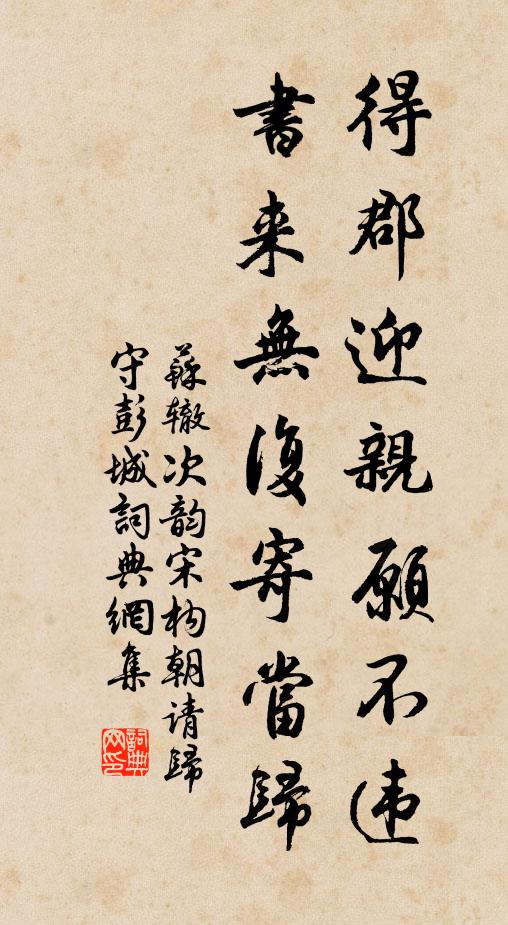 得郡迎親願不违
書来無復寄當歸
蘇辙次韵宋构朝请歸
守彭城詞典網集
詞典网印